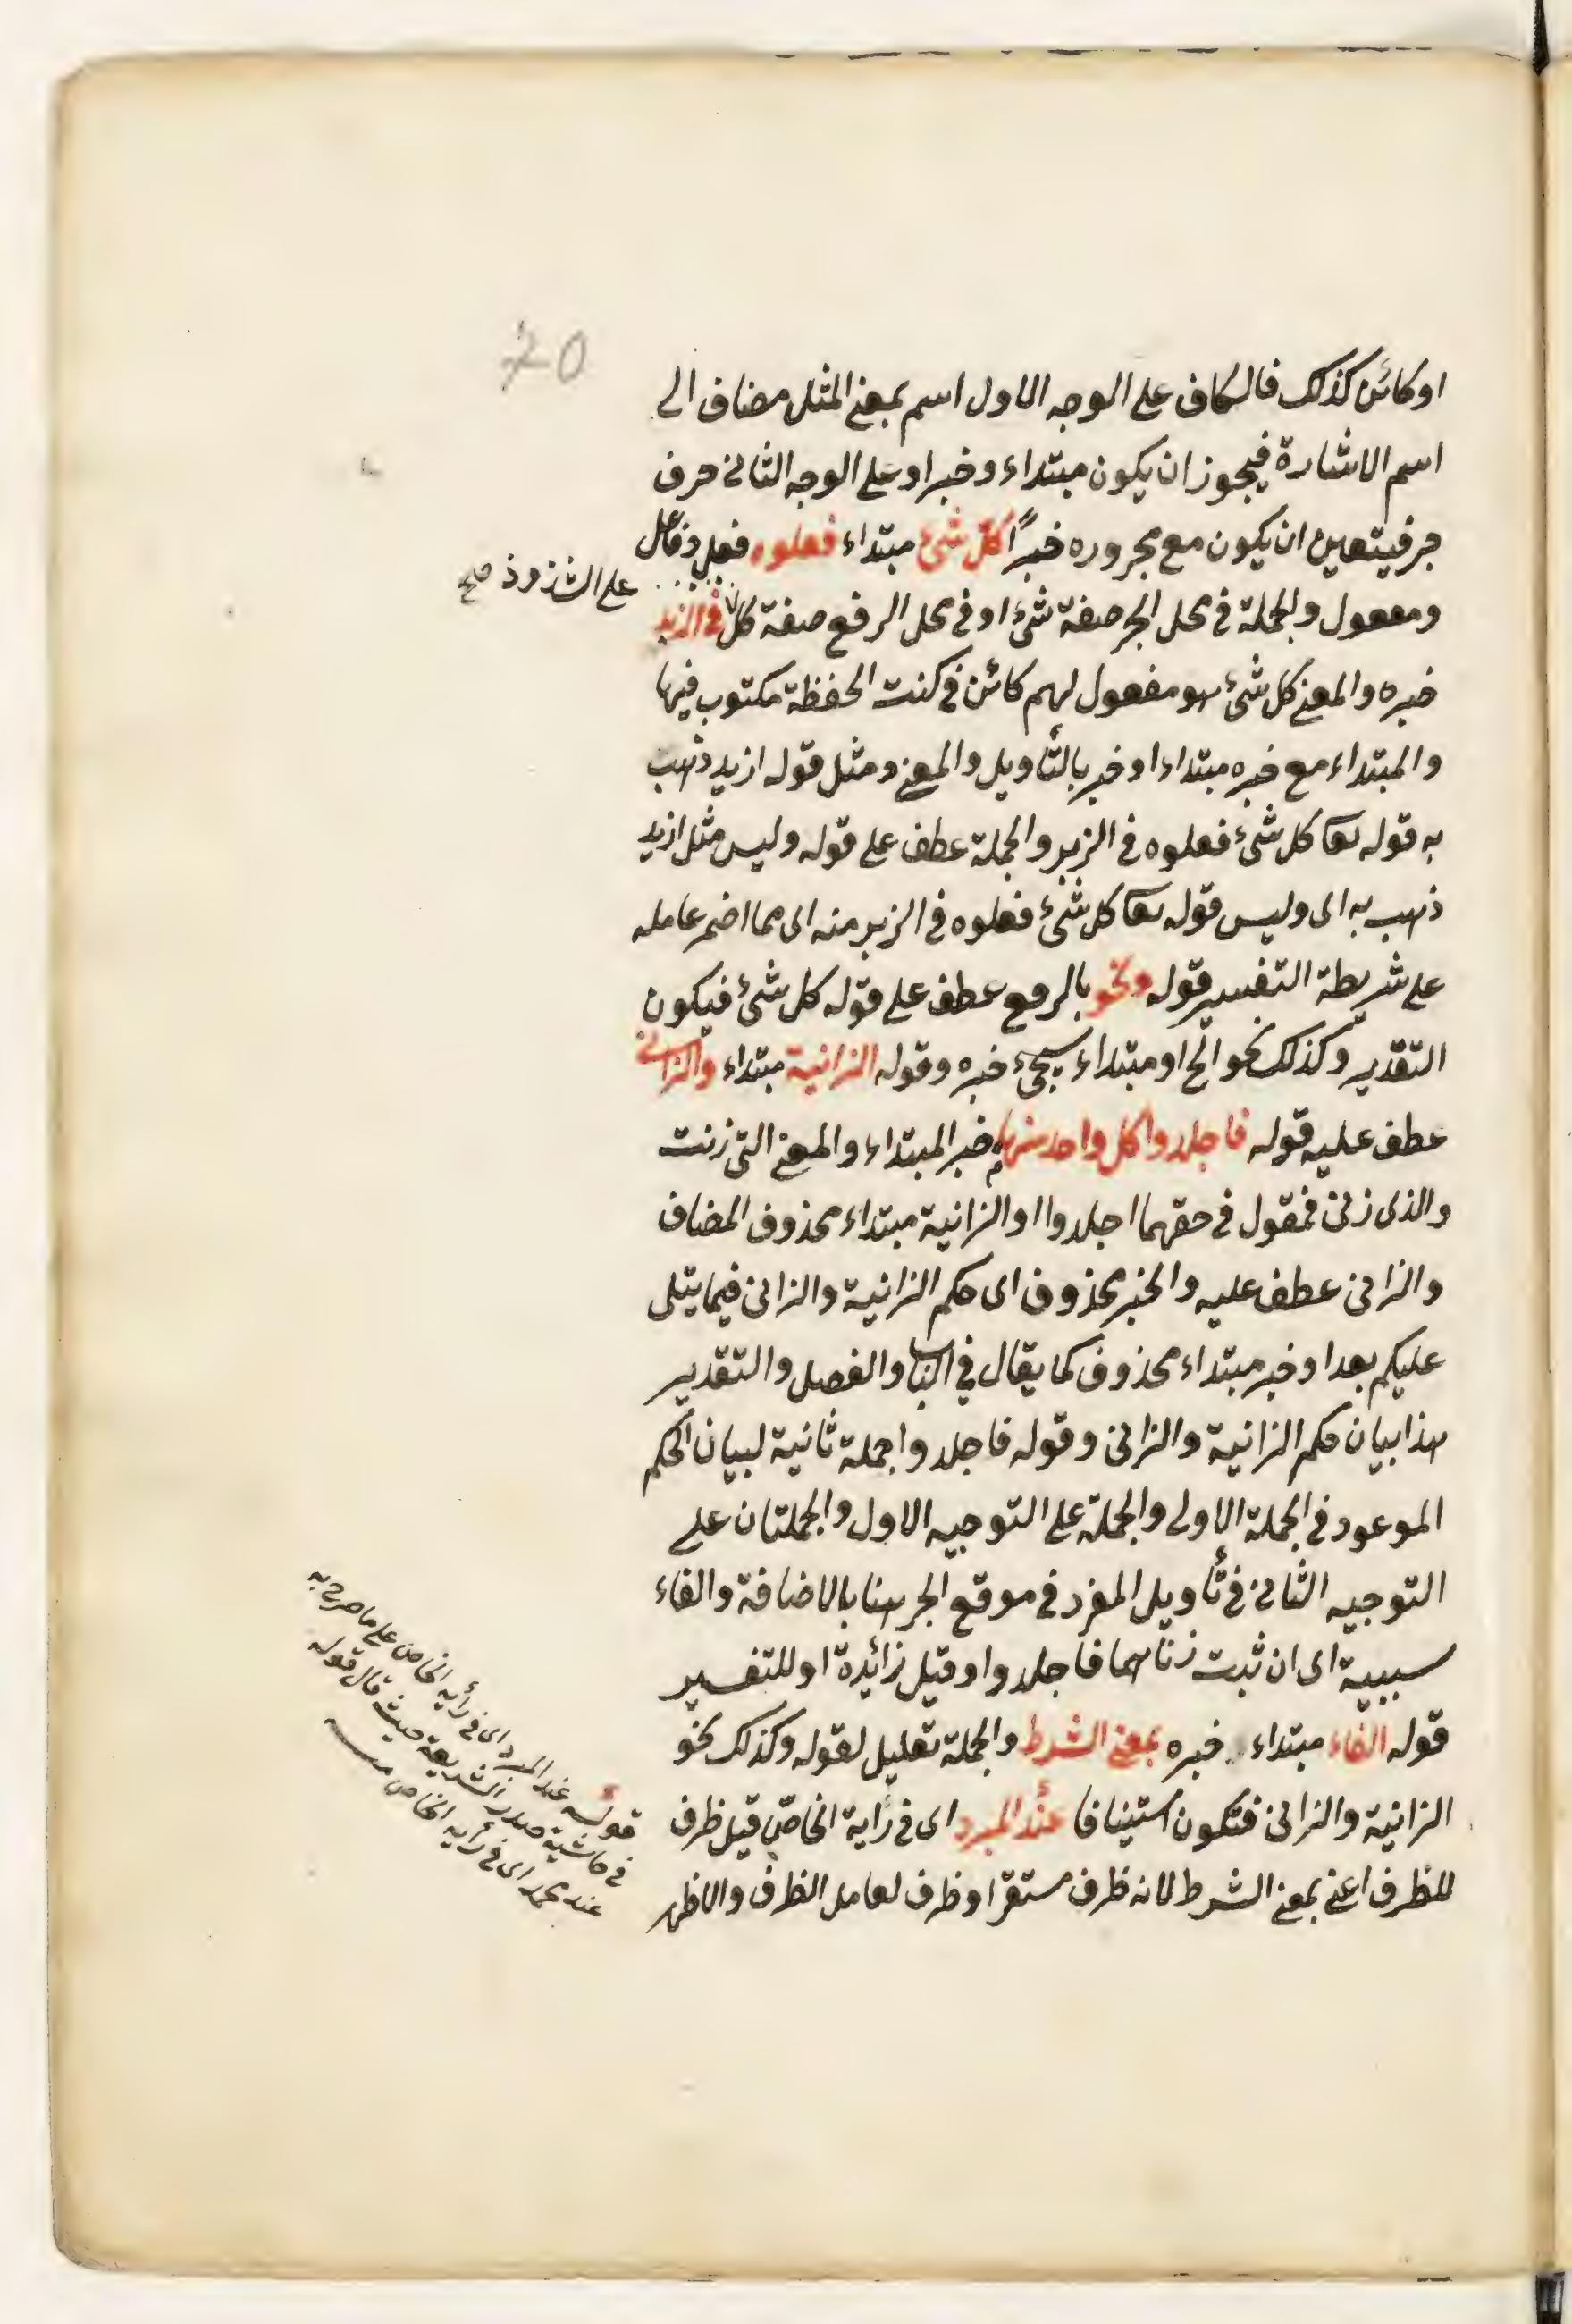 70
او كائن كذلك فالكاف على الوجه الاول اسم بمعنى المثل مضاف الى
اسم الاشارة فيجوز ان يكون مبتداء وخبرا وعلى الوجه الثانى حرف
جر فيتعين ان يكون مع مجروره خبرًا كل شئ مبتداء فعلوه فعل وفاعل
على الشذوذ صح
ومفعول والجملة فى محل الجر صفة شئ او فى محل الرفع صفة كل فى الزبر
خبره والمعنى كل شئ هو مفعول لهم كائن فى كتب الحفظة مكتوب فيها
والمبتداء مع خبره مبتداء او خبر بالتأويل والمعنى ومثل قوله ازيد ذهب
به قوله تعا كل شئ فعلوه فى الزبر والجملة عطف على قوله وليس مثل ازيد
ذهب به اى وليس قوله تعا كل شئ فعلوه فى الزبر منه اى مما اضمر عامله
على شريطة التفسير قوله ونحو بالرفع عطف على قوله كل شئ فيكون
التقدير وكذلك نحو الخ او مبتداء سيجئ خبره وقوله الزانية مبتداء والزانى
عطف عليه قوله فاجلدوا كل واحد منهما خبر المبتداء والمعنى التى زنت
والذى زنى فمقول فى حقهما اجلدوا او الزانية مبتداء محذوف المضاف
والزانى عطف عليه والخبر محذوف اى حكم الزانية والزانى فيما يتلى
عليكم بعد او خبر مبتداء محذوف كما يقال فى الباب والفصل والتقدير
هذا بيان حكم الزانية والزانى وقوله فاجلدوا جملة ثانية لبيان الحكم
الموعود فى الجملة الاولى والجملة على التوجيه الاول والجملتان على
التوجيه الثانى فى تأويل المفرد فى موقع الجر هنا بالاضافة والفاء
سببية اى ان ثبت زناهما فاجلدوا وقيل زائدة او للتفسير
قوله الفاء مبتداء خبره بمعنى الشرط والجملة تعليل لقوله وكذلك نحو
الزانية والزانى فتكون استينافا عند المبرد اى فى رأيه الخاص قيل ظرف
للظرف اعنى بمعنى الشرط لانه ظرف مستقر او ظرف لعامل الظرف والاظهر
قوله عند المبرد اى فى رأيه الخاص على ما صرح به
فى حاشية صدر الشريعة حيث قال قوله
عند محمد اى فى رأيه الخاص